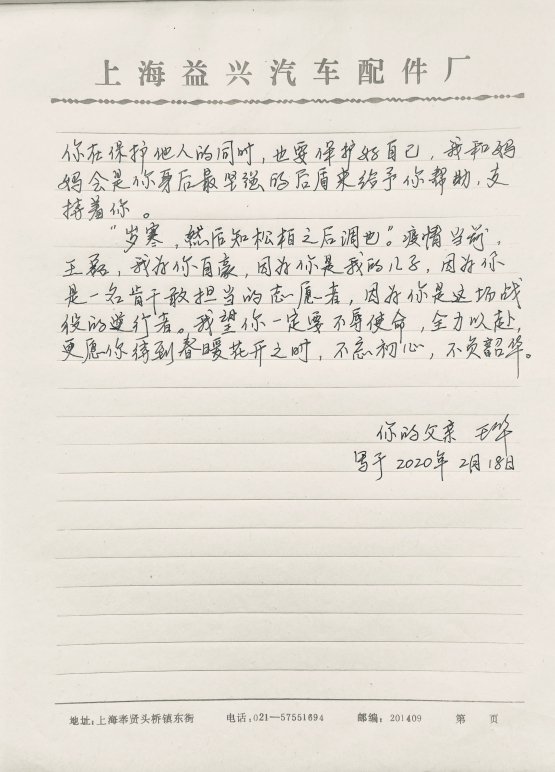 上海益兴汽车配件厂
你在保护他人的同时，也要保护好自己，我和妈
妈会是你身后最坚强的后盾来给予你帮助，支
持着你。
“岁寒，然后知松柏之后调也。”疫情当前，
王磊，我为你自豪，因为你是我的儿子，因为你
是一名肯干敢担当的志愿者，因为你是这场战
役的逆行者。我望你一定要不辱使命，全力以赴，
更愿你待到春暖花开之时，不忘初心，不负韶华。
你的父亲 王华
写于 2020年 2月18日
地址：上海奉贤头桥镇东街 电话：021—57551694 邮编：201409 第 页